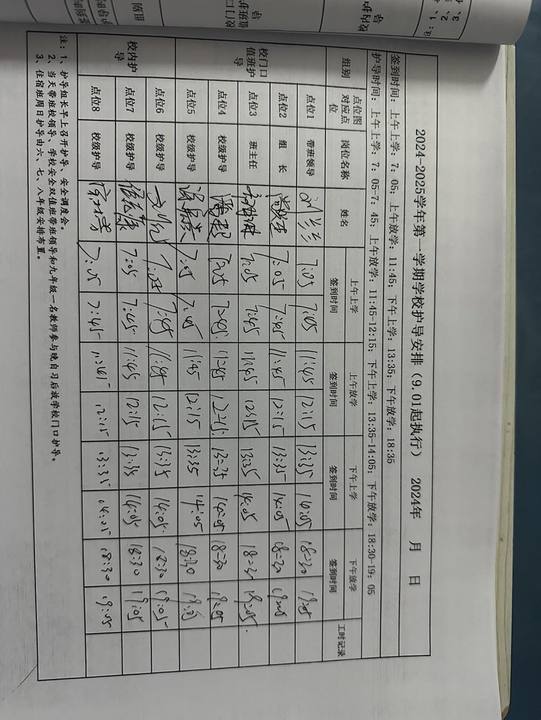 2024-2025学年第一学期学校护导安排（9.01起执行） 2024年 月 日
签到时间：上午上学：7：05；上午放学：11:45；下午上学：13:35；下午放学：18:35
护导时间：上午上学：7：05-7：45；上午放学：11:45-12:15；下午上学：13:35-14:05；下午放学：18:30-19：05
组别 点位图对应点位 岗位名称 姓名 上午上学签到时间 上午放学签到时间 下午上学签到时间 下午放学签到时间 工时记录
校门口值班护导
点位1 带班领导 7:05 7:45 11:45 12:15 13:35 14:05 18:30 19:05
点位2 组 长 7:05 7:45 11:45 12:15 13:35 14:05 18:30 19:05
点位3 班主任 7:05 7:45 11:45 12:15 13:35 14:05 18:30 19:05
点位4 校级护导 7:05 7:45 11:45 12:15 13:35 14:05 18:30 19:05
点位5 校级护导 7:05 7:45 11:45 12:15 13:35 14:05 18:30 19:05
校内护导
点位6 校级护导 7:05 7:45 11:45 12:15 13:35 14:05 18:30 19:05
点位7 校级护导 7:05 7:45 11:45 12:15 13:35 14:05 18:30 19:05
点位8 校级护导 7:05 7:45 11:45 12:15 13:35 14:05 18:30 19:05
注：1、护导组长早上召开护导、安全调度会。
2、当天带班校领导、学校安全双值班带班领导和九年级一名教师参与晚自习后放学校门口护导。
3、住宿班周日护导由六、七、八年级安排布置。